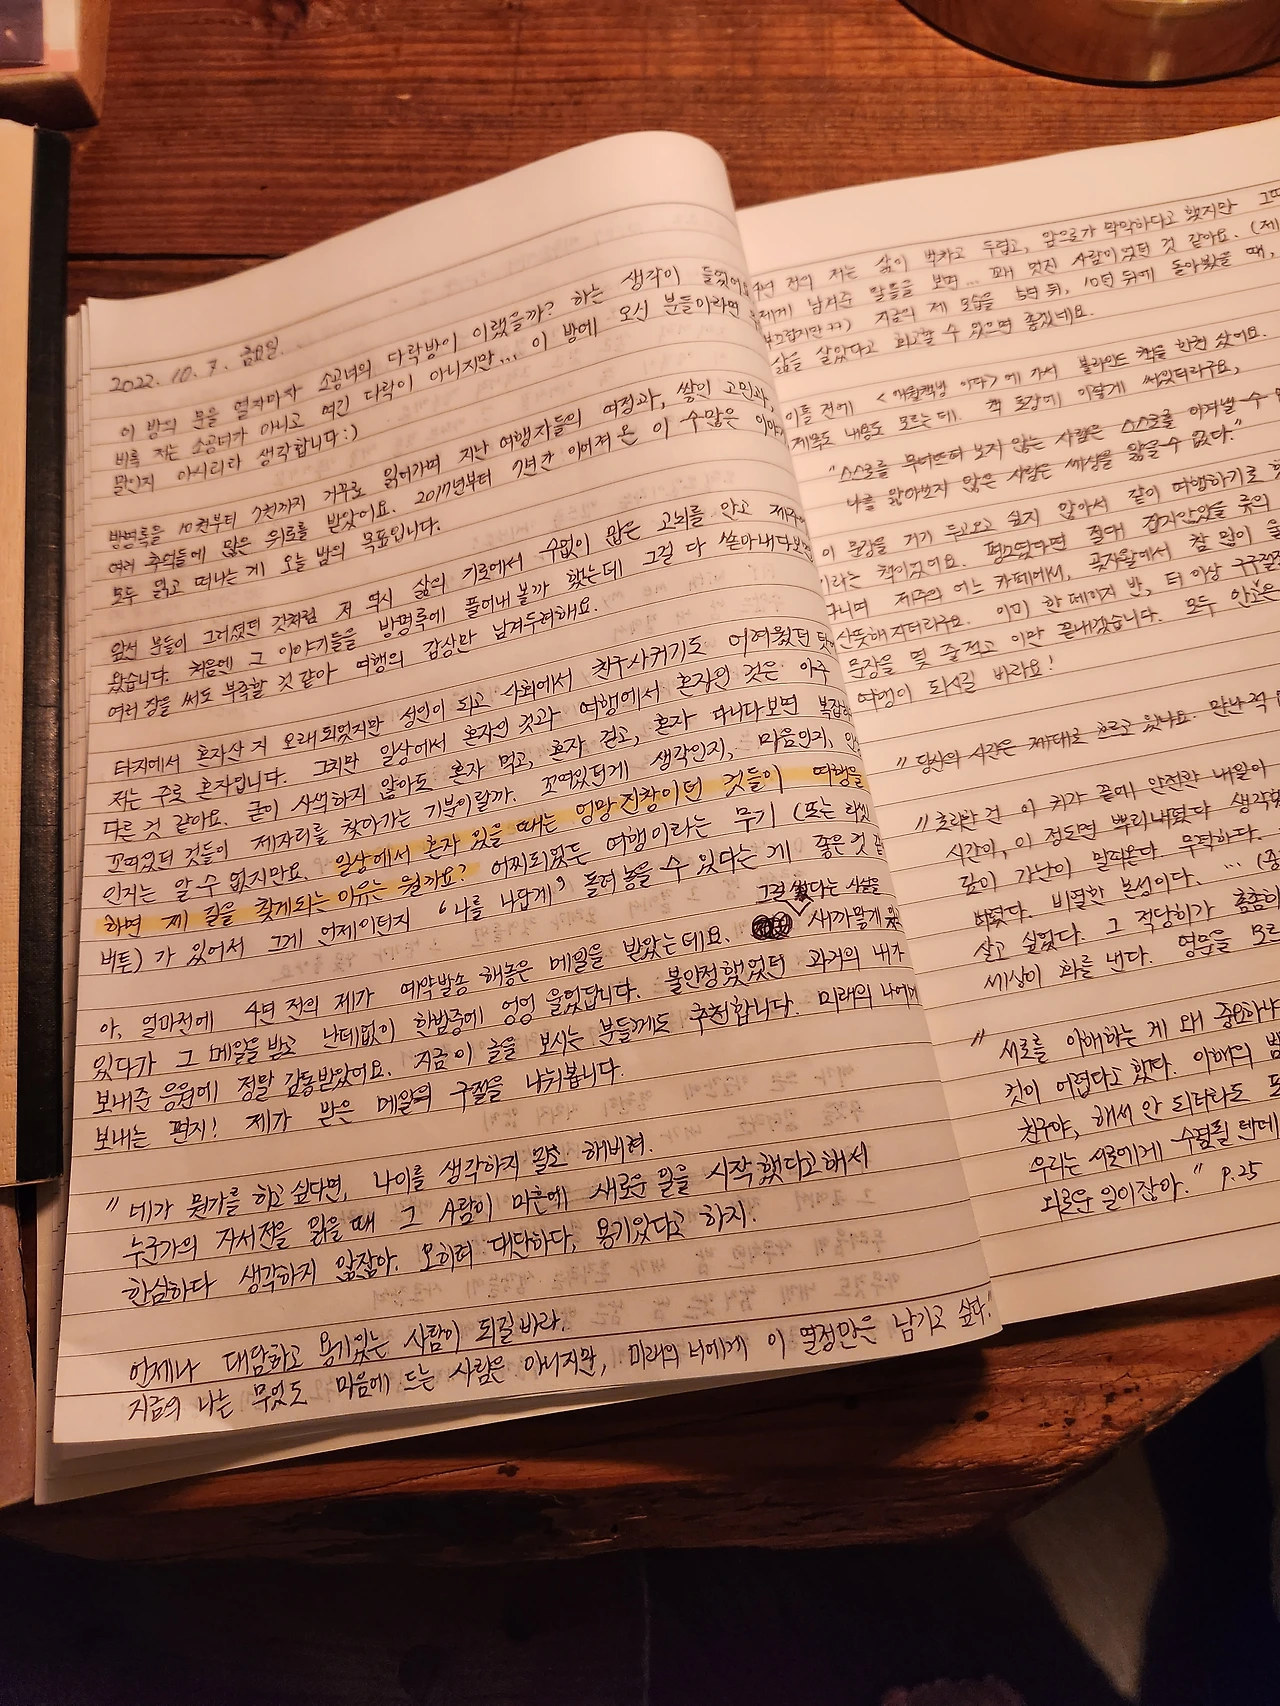 2022. 10. 7. 금요일.
이 방의 문을 열자마자 소공녀의 다락방이 이랬을까? 하는 생각이 들었어요
비록 저는 소공녀가 아니고 여긴 다락이 아니지만... 이 방에 오신 분들이라면
말인지 아시리라 생각합니다:)
방명록을 10권부터 7권까지 거꾸로 읽어가며 지난 여행자들의 여정과, 쌓인 고민과,
여러 추억들에 많은 위로를 받았어요. 2017년부터 7년간 이어져 온 이 수많은 이야
모두 읽고 떠나는 게 오늘 밤의 목표입니다.
앞선 분들이 그러셨던 것처럼 저 역시 삶의 기로에서 수없이 많은 고뇌를 안고 제주에
왔습니다. 처음엔 그 이야기들을 방명록에 풀어내 볼까 했는데 그걸 다 쏟아내다보면
여러 장을 써도 부족할 것 같아 여행의 감상만 남겨두려해요.
타지에서 혼자산 지 오래되었지만 성인이 되고 사회에서 친구사귀기도 어려웠던 탓에
저는 주로 혼자입니다. 그치만 일상에서 혼자인 것과 여행에서 혼자인 것은 아주
다른 것 같아요. 굳이 사색하지 않아도 혼자 먹고, 혼자 걷고, 혼자 다니다보면 복잡하
꼬여있던 것들이 제자리를 찾아가는 기분이랄까. 꼬여있던게 생각인지, 마음인지,
인지는 알 수 없지만요. 일상에서 혼자 있을 때는 엉망진창이던 것들이 여행을
하면 제 길을 찾게되는 이유는 뭘까요? 어찌되었든 여행이라는 무기 (또는 리셋
버튼) 가 있어서 그게 언제이던지 '나를 나답게' 돌려 놓을 수 있다는 게 좋은 것 같
그런 썼다는 사실을
아, 얼마전에 4년 전의 제가 예약발송 해놓은 메일을 받았는데요. 새까맣게 잊
있다가 그 메일을 받고 난데없이 한밤중에 엉엉 울었답니다. 불안정했었던 과거의 내가
보내준 응원에 정말 감동받았어요. 지금 이 글을 보시는 분들께도 추천합니다. 미래의 나에게
보내는 편지! 제가 받은 메일의 구절을 나눠봅니다.
" 네가 뭔가를 하고싶다면, 나이를 생각하지 말고 해버려.
누군가의 자서전을 읽을 때 그 사람이 마흔에 새로운 일을 시작했다고해서
한심하다 생각하지 않잖아. 오히려 대단하다, 용기있다고 하지.
언제나 대담하고 용기있는 사람이 되길바라.
지금의 나는 무엇도 마음에 드는 사람은 아니지만, 미래의 너에게 이 열정만은 남기고 싶다."
4년 전의 저는 삶이 벅차고 두렵고, 앞으로가 막막하다고 했지만 그때
제게 남겨준 말들을 보면... 꽤 멋진 사람이었던 것 같아요. (제
부끄럽지만ㅋㅋ) 지금의 제 모습을 5년 뒤, 10년 뒤에 돌아봤을 때,
삶을 살았다고 회고할 수 있으면 좋겠네요.
이틀 전에 에 가서 블라인드 책을 한권 샀어요.
제목도 내용도 모르는데, 책 포장에 이렇게 써있더라구요.
"스스로를 무너뜨려 보지 않는 사람은 스스로를 이겨낼 수
나를 앓아보지 않은 사람은 세상을 앓을수 없다."
이 문장을 거기 두고오고 싶지 않아서 같이 여행하기로
이라는 책이었어요. 평소였다면 절대 집지않았을 류의
다니며 제주의 어느 카페에서, 곶자왈에서 참 많이
산뜻해지더라구요. 이미 한 페이지 반, 더 이상
문장을 몇 줄적고 이만 끝내겠습니다. 모두 안온
여행이 되시길 바라요!
" 당신의 시간은 제대로 흐르고 있나요. 만난 적
" 초라한 건 이 커가 끝에 안전한 내일이
시간이, 이 정도면 뿌리내렸다 생각
깊이 가난이 밀려온다. 무력하다.
버렸다. 비열한 본성이다. ... (중
살고 싶었다. 그 적당히가 촘촘히
세상이 화를 낸다. 영문을 모
" 서로를 이해하는 게 왜 중요하냐
것이 어렵다고 했다. 이해의
친구야, 해서 안 되더라도
우리는 서로에게 수렴될 텐데
외로운 일이잖아." P.25